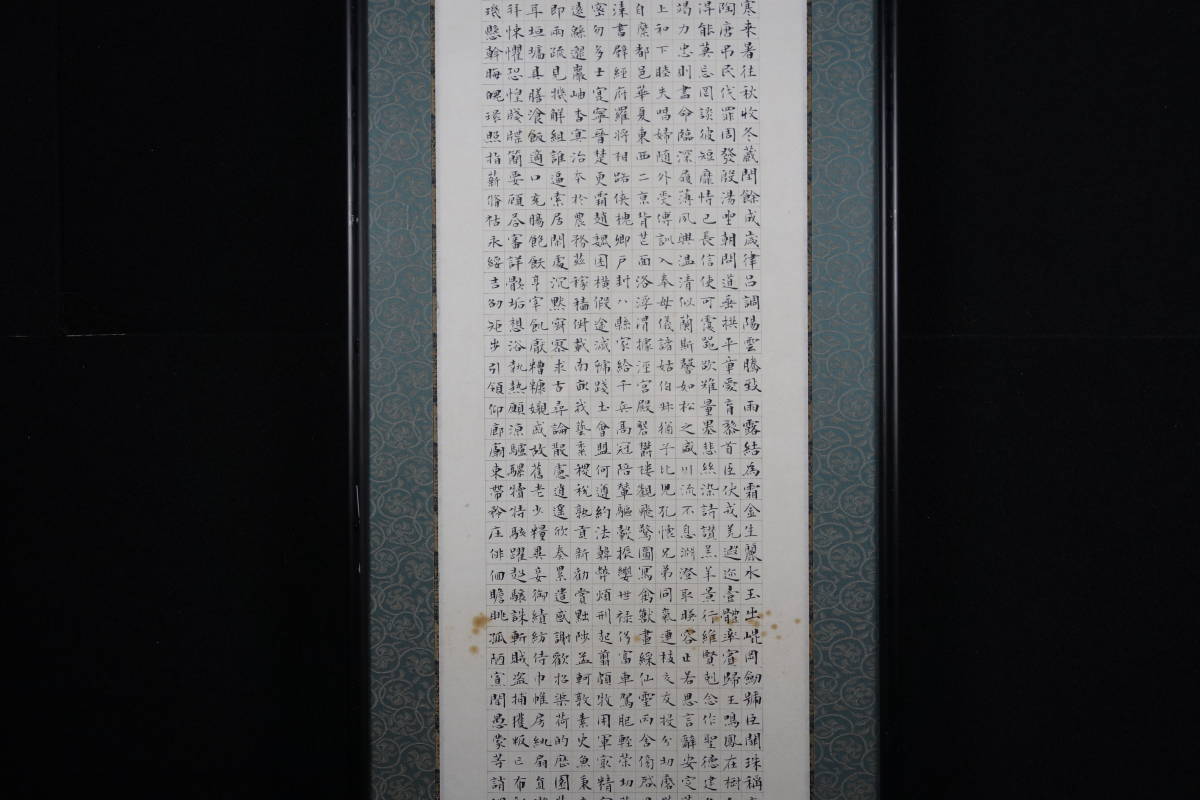 寒来暑往秋收冬蔵閏餘成歳律呂調陽雲騰致雨露結為霜金生麗水玉出崐岡劔號巨闕珠稱
陶唐弔民伐罪周發殷湯坐朝問道垂拱平章愛育黎首臣伏戎羌遐迩壹體率賓歸王鳴鳳在樹
得能莫忘罔談彼短靡恃己長信使可覆器欲難量墨悲絲染詩讃羔羊景行維賢剋念作聖德建
竭力忠則盡命臨深履薄夙興温凊似蘭斯馨如松之盛川流不息淵澄取暎容止若思言辭安定
上和下睦夫唱婦随外受傅訓入奉母儀諸姑伯叔猶子比兒孔懐兄弟同氣連枝交友投分切磨
自縻都邑華夏東西二京背芒面洛浮渭據涇宮殿盤欝樓觀飛驚圖寫禽獣畫綵仙靈丙舍傍啓
漆書壁經府羅将相路侠槐卿戸封八縣家給千兵高冠陪輦驅轂振纓世禄侈富車駕肥輕策功
密勿多士寔寧晉楚更霸趙魏困横假途滅虢踐土會盟何遵約法韓弊煩刑起翦頗牧用軍最精
遠緜邈巖岫杳冥治本於農務茲稼穡俶載南畝我藝黍稷税熟貢新勸賞黜陟孟軻敦素史魚秉
即兩疏見機解組誰逼索居閑處沉黙寂寥求古尋論散慮逍遥欣奏累遣慼謝歡招渠荷的歴園
耳垣墻具膳湌飯適口充腸飽飫享宰飢厭糟糠親戚故舊老少糧異妾御績紡侍巾帷房紈扇員
拜悚懼恐惶牋牒簡要顧答審詳骸垢想浴執熱願涼驢騾犢特駭躍超驤誅斬賊盗捕獲叛亡布
璣懸斡晦魄環照指薪脩祜永綏吉劭矩歩引領仰廊廟束帶矜庄徘徊瞻眺孤陋寡聞愚蒙等誚